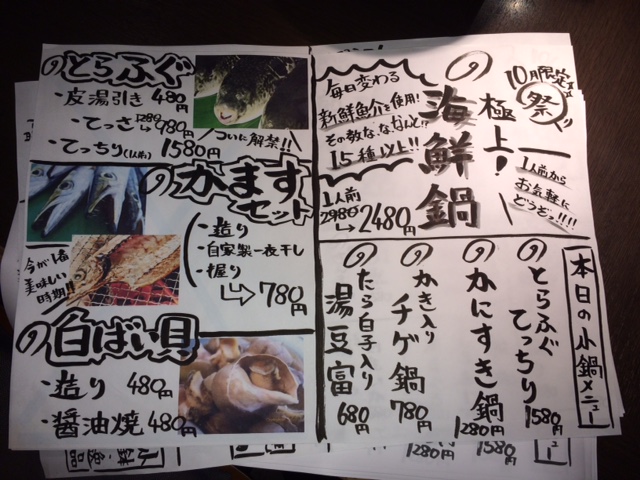 のとらふぐ
・皮湯引き 480円
・てっさ 1280→980円
・てっちり(1人前) 1580円
ついに解禁!!
のかます
セット
・造り
・自家製一夜干し
・握り
→780円
今が1番
美味しい
時期!!
の白ばい貝
・造り 480円
・醤油焼 480円
10月限定
祭
の極上!
海鮮鍋
毎日変わる
新鮮魚介を使用!
その数な、な、なんと!?
15種以上!!
1人前
2980→2480円
1人前から
お気軽に
どうぞっ!!!!
本日の小鍋メニュー
のとらふぐてっちり 1580円
のかにすき鍋 1280円
のかき入りチゲ鍋 780円
のたら白子入り湯豆富 680円
1280円
1580円